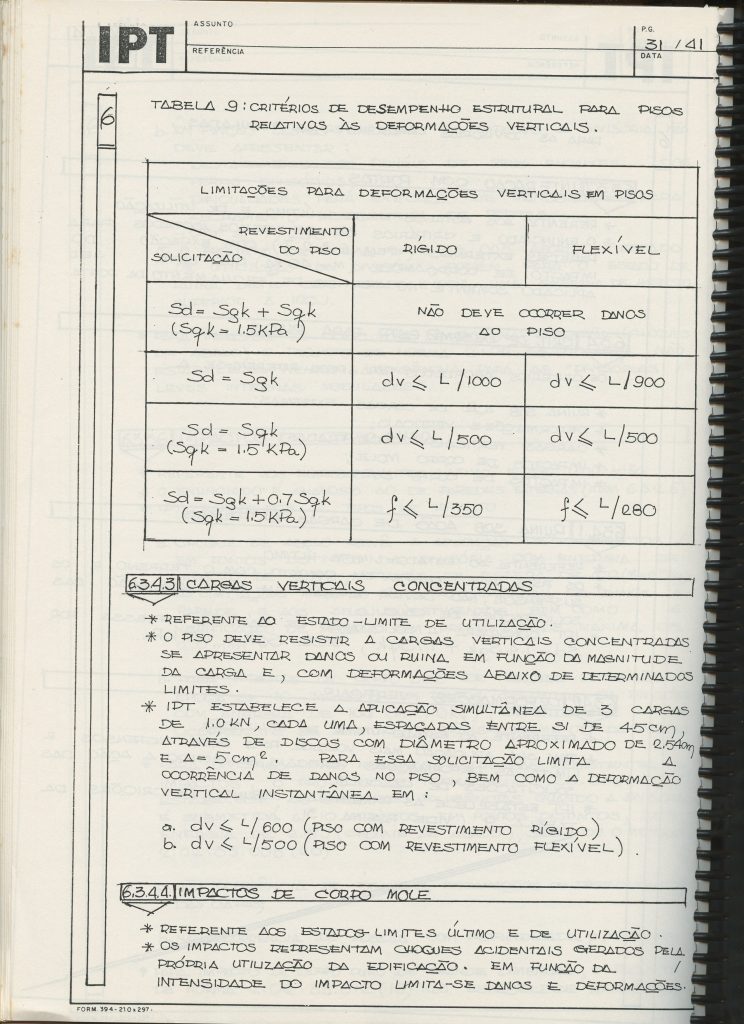 IPT
ASSUNTO
REFERÊNCIA
P.G.
31 / 41
DATA
6
TABELA 9: CRITÉRIOS DE DESEMPENHO ESTRUTURAL PARA PISOS
RELATIVOS ÀS DEFORMAÇÕES VERTICAIS.
LIMITAÇÕES PARA DEFORMAÇÕES VERTICAIS EM PISOS
REVESTIMENTO
DO PISO
SOLICITAÇÃO
RÍGIDO
FLEXÍVEL
Sd = Sgk + Sqk
(Sqk = 1.5 KPa)
NÃO DEVE OCORRER DANOS
AO PISO
Sd = Sgk
dv ⩽ L/1000
dv ⩽ L/900
Sd = Sqk
(Sqk = 1.5 KPa)
dv ⩽ L/500
dv ⩽ L/500
Sd = Sgk + 0.7 Sqk
(Sqk = 1.5 KPa)
f ⩽ L/350
f ⩽ L/280
6.3.4.3 CARGAS VERTICAIS CONCENTRADAS
* REFERENTE AO ESTADO-LIMITE DE UTILIZAÇÃO.
* O PISO DEVE RESISTIR A CARGAS VERTICAIS CONCENTRADAS
SE APRESENTAR DANOS OU RUINA EM FUNÇÃO DA MAGNITUDE
DA CARGA E, COM DEFORMAÇÕES ABAIXO DE DETERMINADOS
LIMITES.
* IPT ESTABELECE A APLICAÇÃO SIMULTÂNEA DE 3 CARGAS
DE 1.0 KN, CADA UMA, ESPAÇADAS ENTRE SI DE 45 cm,
ATRAVÉS DE DISCOS COM DIÂMETRO APROXIMADO DE 2.54cm
E A = 5 cm². PARA ESSA SOLICITAÇÃO LIMITA A
OCORRÊNCIA DE DANOS NO PISO, BEM COMO A DEFORMAÇÃO
VERTICAL INSTANTÂNEA EM:
a. dv ⩽ L/600 (PISO COM REVESTIMENTO RÍGIDO)
b. dv ⩽ L/500 (PISO COM REVESTIMENTO FLEXÍVEL).
6.3.4.4. IMPACTOS DE CORPO MOLE
* REFERENTE AOS ESTADOS-LIMITES ÚLTIMO E DE UTILIZAÇÃO.
* OS IMPACTOS REPRESENTAM CHOQUES ACIDENTAIS GERADOS PELA
PRÓPRIA UTILIZAÇÃO DA EDIFICAÇÃO. EM FUNÇÃO DA /
INTENSIDADE DO IMPACTO LIMITA-SE DANOS E DEFORMAÇÕES.
FORM. 394 - 210 x 297 -